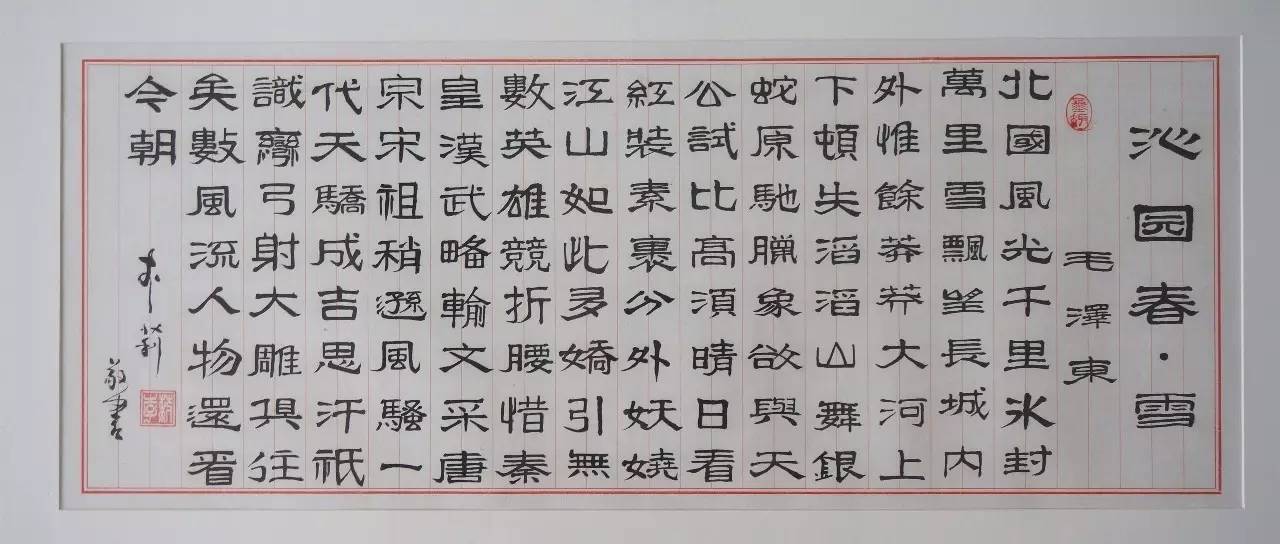 沁园春·雪
毛澤東
北國風光千里冰封
萬里雪飄望長城內
外惟餘莽莽大河上
下頓失滔滔山舞銀
蛇原馳臘象欲與天
公試比髙須晴日看
紅裝素裹分外妖嬈
江山如此多嬌引無
數英雄競折腰惜秦
皇漢武略輸文采唐
宗宋祖稍遜風騷一
代天驕成吉思汗祇
識彎弓射大雕俱往
矣數風流人物還看
今朝
李莉
敬書